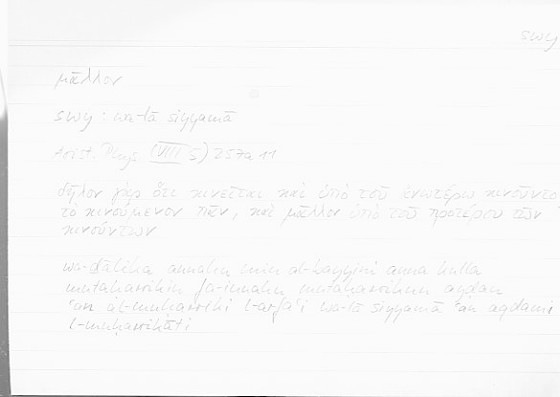 swy
μᾶλλον
swy : wa-lā siyyamā
Arist. Phys. (VIII 5) 257a11
δῆλον γὰρ ὅτι κινεῖται καὶ ὑπὸ τοῦ ἀνωτέρω κινοῦντο
τὸ κινούμενον πᾶν, καὶ μᾶλλον ὑπὸ τοῦ προτέρου τῶν
κινούντων
wa-ḏālika annahu min al-bayyini anna kulla
mutaḥarrikin fa-innahu mutaḥarrikun ayḍan
ʿan al-muḥarriki l-arfaʿi wa-lā siyyamā ʿan aqdami
l-muḥarrikāti